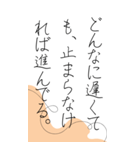 どんなに遅くて
も、止まらなけ
れば進んでる。